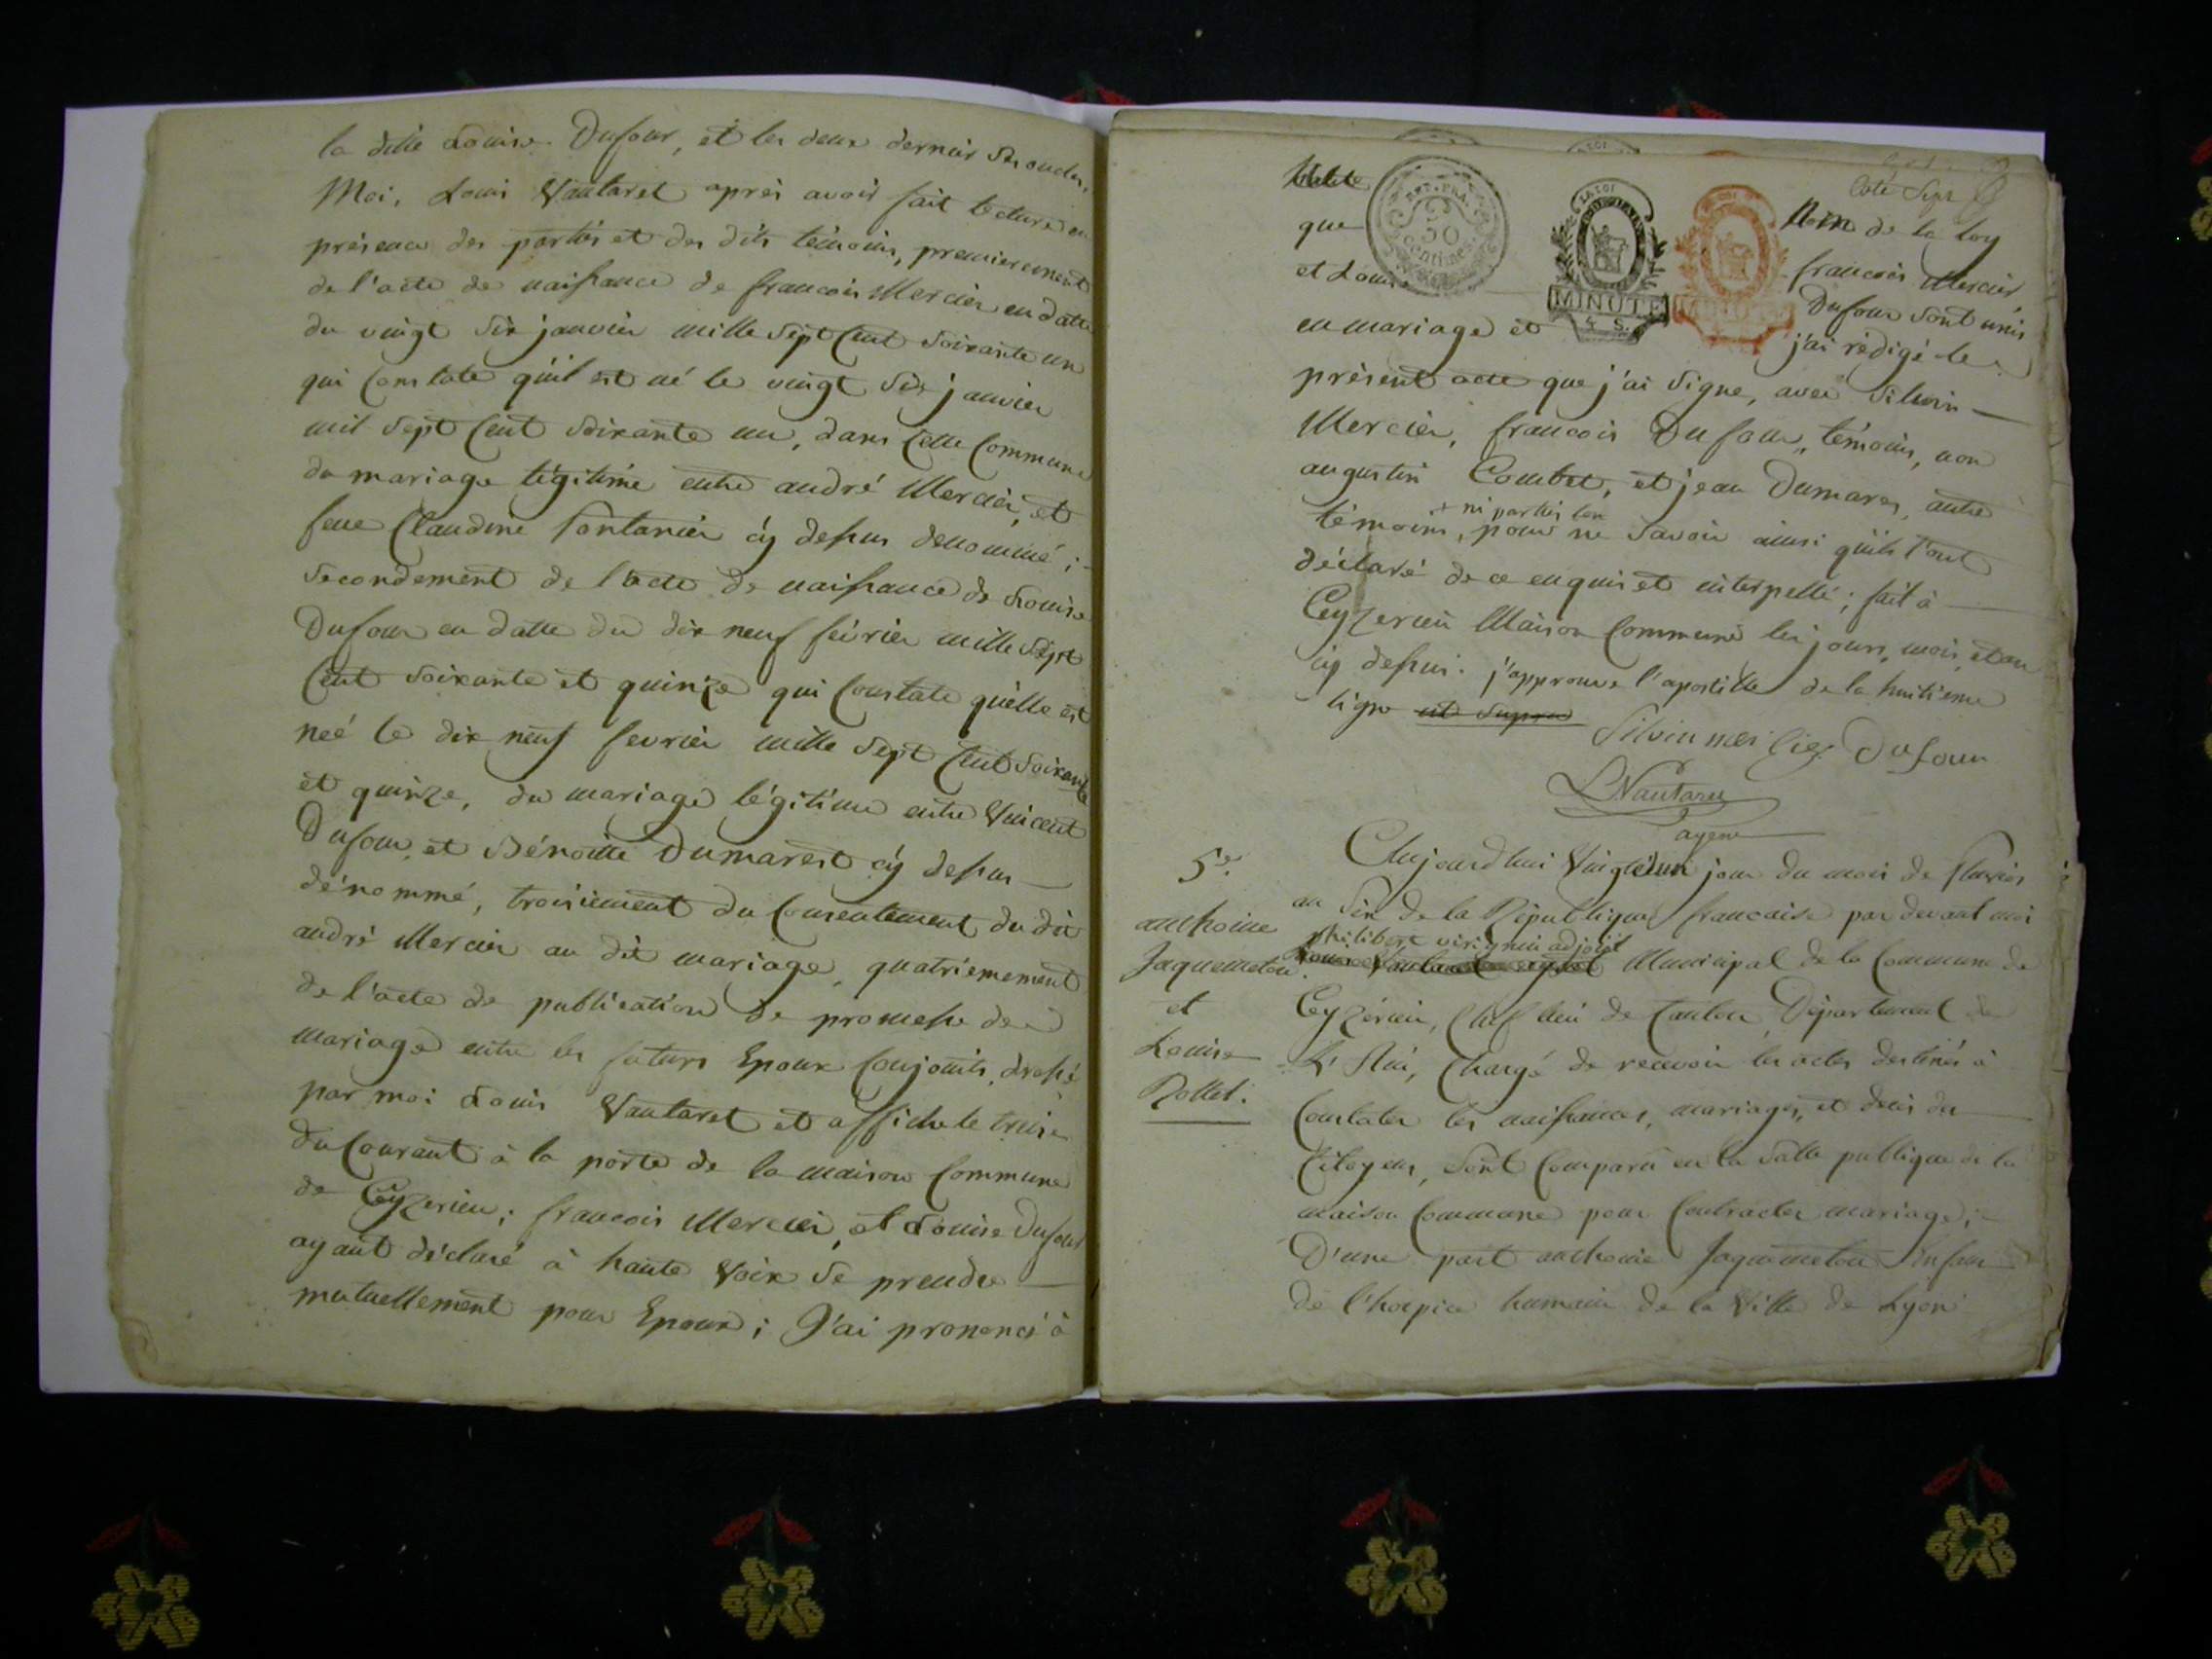 la ditte Louise Dufour, et les deux dernier ses oncles,
Moi, Louis Vautaret après avoir fait lecture en
présence des parties et des dits témoins, premierement
de l'acte de naissance de francois Mercier en datte
du vingt six janvier mille sept Cent soixante un
qui Constate qu'il est né le vingt six janvier
mil sept Cent soixante un, dans Cette Commune
du mariage légitime entre andré Mercier, et
feue Claudine fontanier cÿ dessus denommé ;
secondement de l'acte de naissance de Louise
Dufour en datte du dix neuf février mille sept
Cent soixante et quinze qui Constate qu'elle est
neé le dix neuf fevrier mille sept Cent soixante
et quinze, du mariage légitime entre Vincent
Dufour et Bénoitte Dumarest cÿ dessus
dénommé, troisiement du Consentement du dit
andré Mercier au dit mariage, quatriemement
de l'acte de publication de promesse de
mariage entre les futurs Epoux Conjoints, dressé
par moi Louis Vautaret et affiché le treise
du Courant à la porte de la maison Commune
de Ceyzerieu ; francois Mercier, et Louise Dufour
ayant déclaré à haute Voix se prendre
mutuellement pour Epoux ; J'ai prononcé à
Coté Sept
REP. FRA.
50
Centimes
LA LOI
MINUTE
4 S.
Nom de la loy
que francois Mercier
et Louise Dufour sont unis
en mariage et j'ai rédigé le
présent acte que j'ai signe, avec Silvin
Mercier, francois Dufour, témoins, non
augustin Combet, et jean Dumares, autre
+ ni parties
témoins, pour ne savoir ainsi qu'ils l'ont
déclaré de ce enquis et interpellé ; fait à
Ceyzerieu Maison Commune les jours, mois, et an
cÿ dessus. j'approuve l'apostille de la huitieme
ligne ut supra
Silvin mercier Dufour
L Vautaret
agent
5e.
anthoine
Jaquemeton
et
Louise
Rollet.
Aujourd'hui Vingt et un jour du mois de pluvios
an Six de la République francaise par devant moi
philibert virignin adjoint
Louis Vautaret agent Municipal de la Commune de
Ceyzérieu, Chef lieu de Canton, Département de
L'Ain, Chargé de recevoir les actes destinés à
Constater les naissances, mariages, et décès des
Citoyens, sont Comparu en la salle publique de la
maison Commune pour Contracter mariage ;
D'une part anthoine Jaquemeton Enfant
de l'hospice humain de la Ville de Lyon